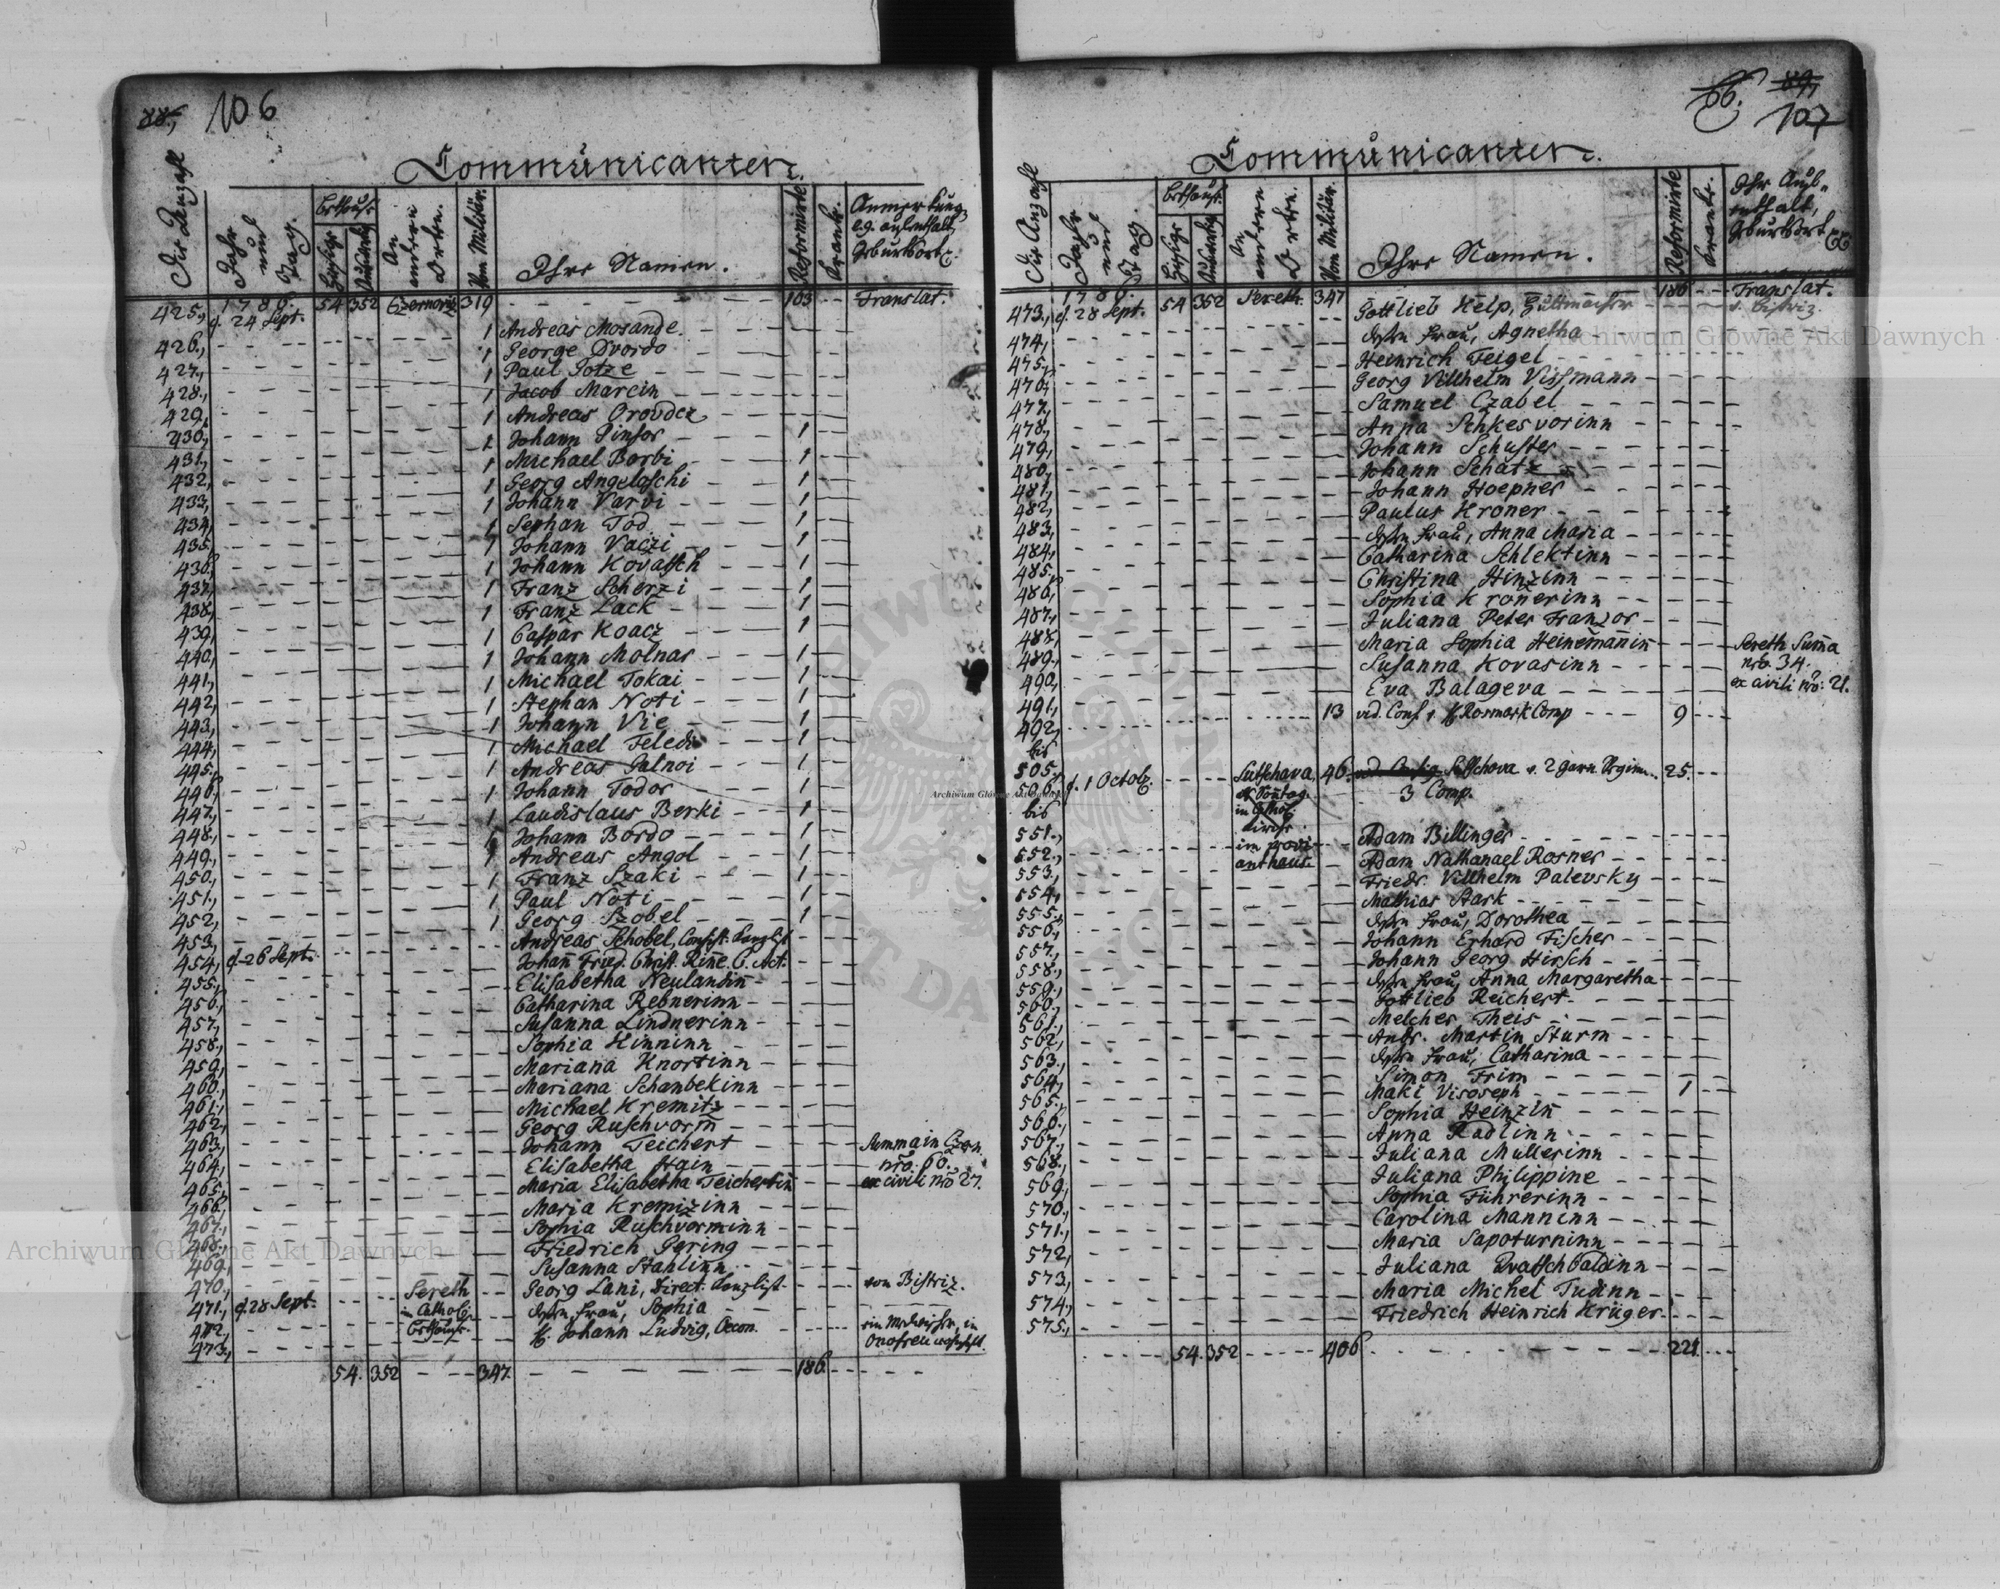 88., 106
Communicanten.
Die Anzahl
Jahr und Tag.
Bethaus
Hiesige
Auswärtig
An andern Orten.
Vom Militär.
Ihre Namen.
Reformirte
Krank.
Anmerkung
e.g. aufenthalt
Geburtsort
425., 1789. 54 352 Czernoviz 319 103 Translat.
d. 24 Sept.
1 Andreas Mosande
426., 1 George Dvordo
427., 1 Paul Potze
428., 1 Jacob Marcin
429., 1 Andreas Orovdcz
430., 1 Johann Pinsor 1
431., 1 Michael Borbi 1
432., 1 Georg Angelaschi 1
433., 1 Johann Varvi 1
434., 1 Sephan Tod 1
435., 1 Johann Vaczi 1
436., 1 Johann Kovatsch 1
437., 1 Franz Scherzi 1
438., 1 Franz Lack 1
439., 1 Caspar Koacz 1
440., 1 Johann Molnar 1
441., 1 Michael Tokai 1
442., 1 Stephan Noti 1
443., 1 Johann Vie 1
444., 1 Michael Feledi 1
445., 1 Andreas Palnoi 1
446., 1 Johann Todor 1
447., 1 Laudislaus Berki 1
448., 1 Johann Bordo 1
449., 1 Andreas Angol 1
450., 1 Franz Szaki 1
451., 1 Paul Noti 1
452., 1 Georg Szobel 1
453., Andreas Schobel, Consist. Canzlist
454., d. 26 Sept. Johañ Fried. Christ. Riñe. C. Act.
455., Elisabetha Neulandiñ
456., Catharina Rebnerinn
457., Susanna Lindnerinn
458., Sophia Hinninn
459., Mariana Knortinn
460., Mariana Schanbekinn
461., Michael Kremitz
462., Georg Ruschvorm
463., Johann Teichert Summa in Czern.
464., Elisabetha Hain nro. 60.
465., Maria Elisabetha Teichertin ex civili nro 27.
466., Maria Kremizinn
467., Sophia Ruschvorminn
468., Friedrich Gering
469., Susanna Stahlinn
470., Sereth Georg Lani, Direct. Canzlist von Bistriz.
471., d. 28 Sept. in Cathol. dessen Frau, Sophia
472., Bethause H. Johann Ludvig, Oecon.
473.,
54. 352 347. 186.
66. 89., 107
Communicanten.
Die Anzahl
Jahr und Tag.
Bethaus.
Hiesige
Auswärtig
An andern Orten.
Vom Militär.
Ihre Namen.
Reformirte
Krank.
Ihr Auf-
enthalt,
Geburtsort
1789. 54 352 Sereth. 347 186 Translat.
473., d. 28 Sept. Gottlieb Help, v. Bistriz
474., dessen Frau, Agnetha
475., Heinrich Feigel
476., Georg Villhelm Vissmann
477., Samuel Czabel
478., Anna Schkesvorinn
479., Johann Schuster
480., Johann Schatz
481., Johann Hoepner
482., Paulus Kroner
483., dessen Frau, Anna Maria
484., Catharina Schlektinn
485., Christina Hinzinn
486., Sophia Kroñerinn
487., Juliana Peter Franzor
488., Maria Sophia Heinemañin Sereth Suma
489., Susanna Kovasinn nro. 34.
490., Eva Balageva ex civili nro: 21.
491., 13 vid. Cons. v. H. Rosmark Comp 9
492.,
bis
505.,
506., d. 1 Octob. Sutschava 46. Sutschova v. 2 garn Regim. 25.
bis 3 Comp.
551., Adam Billinger
552., Adam Nathanael Rosner
553., Friedr. Villhelm Palevsky
554., Mathias Stark
555., dessen Frau, Dorothea
556., Johann Erhard Fischer
557., Johann Georg Hirsch
558., dessen Frau, Anna Margaretha
559., Gottlieb Reichert
560., Melcher Theis
561., Andr. Martin Sturm
562., dessen Frau, Catharina
563., Simon Frim
564., Maki Visoseph 1
565., Sophia Heinziñ
566., Anna Radlinn
567., Juliana Mullerinn
568., Juliana Philippine
569., Sophia Führerinn
570., Carolina Manninn
571., Maria Sapoturninn
572., Juliana Qvatschbaldinn
573., Maria Michel Tudinn
574., Friedrich Heinrich Krüger
575.,
54. 352 406 221.
Archiwum Główne Akt Dawnych
Archiwum Główne Akt Dawnych